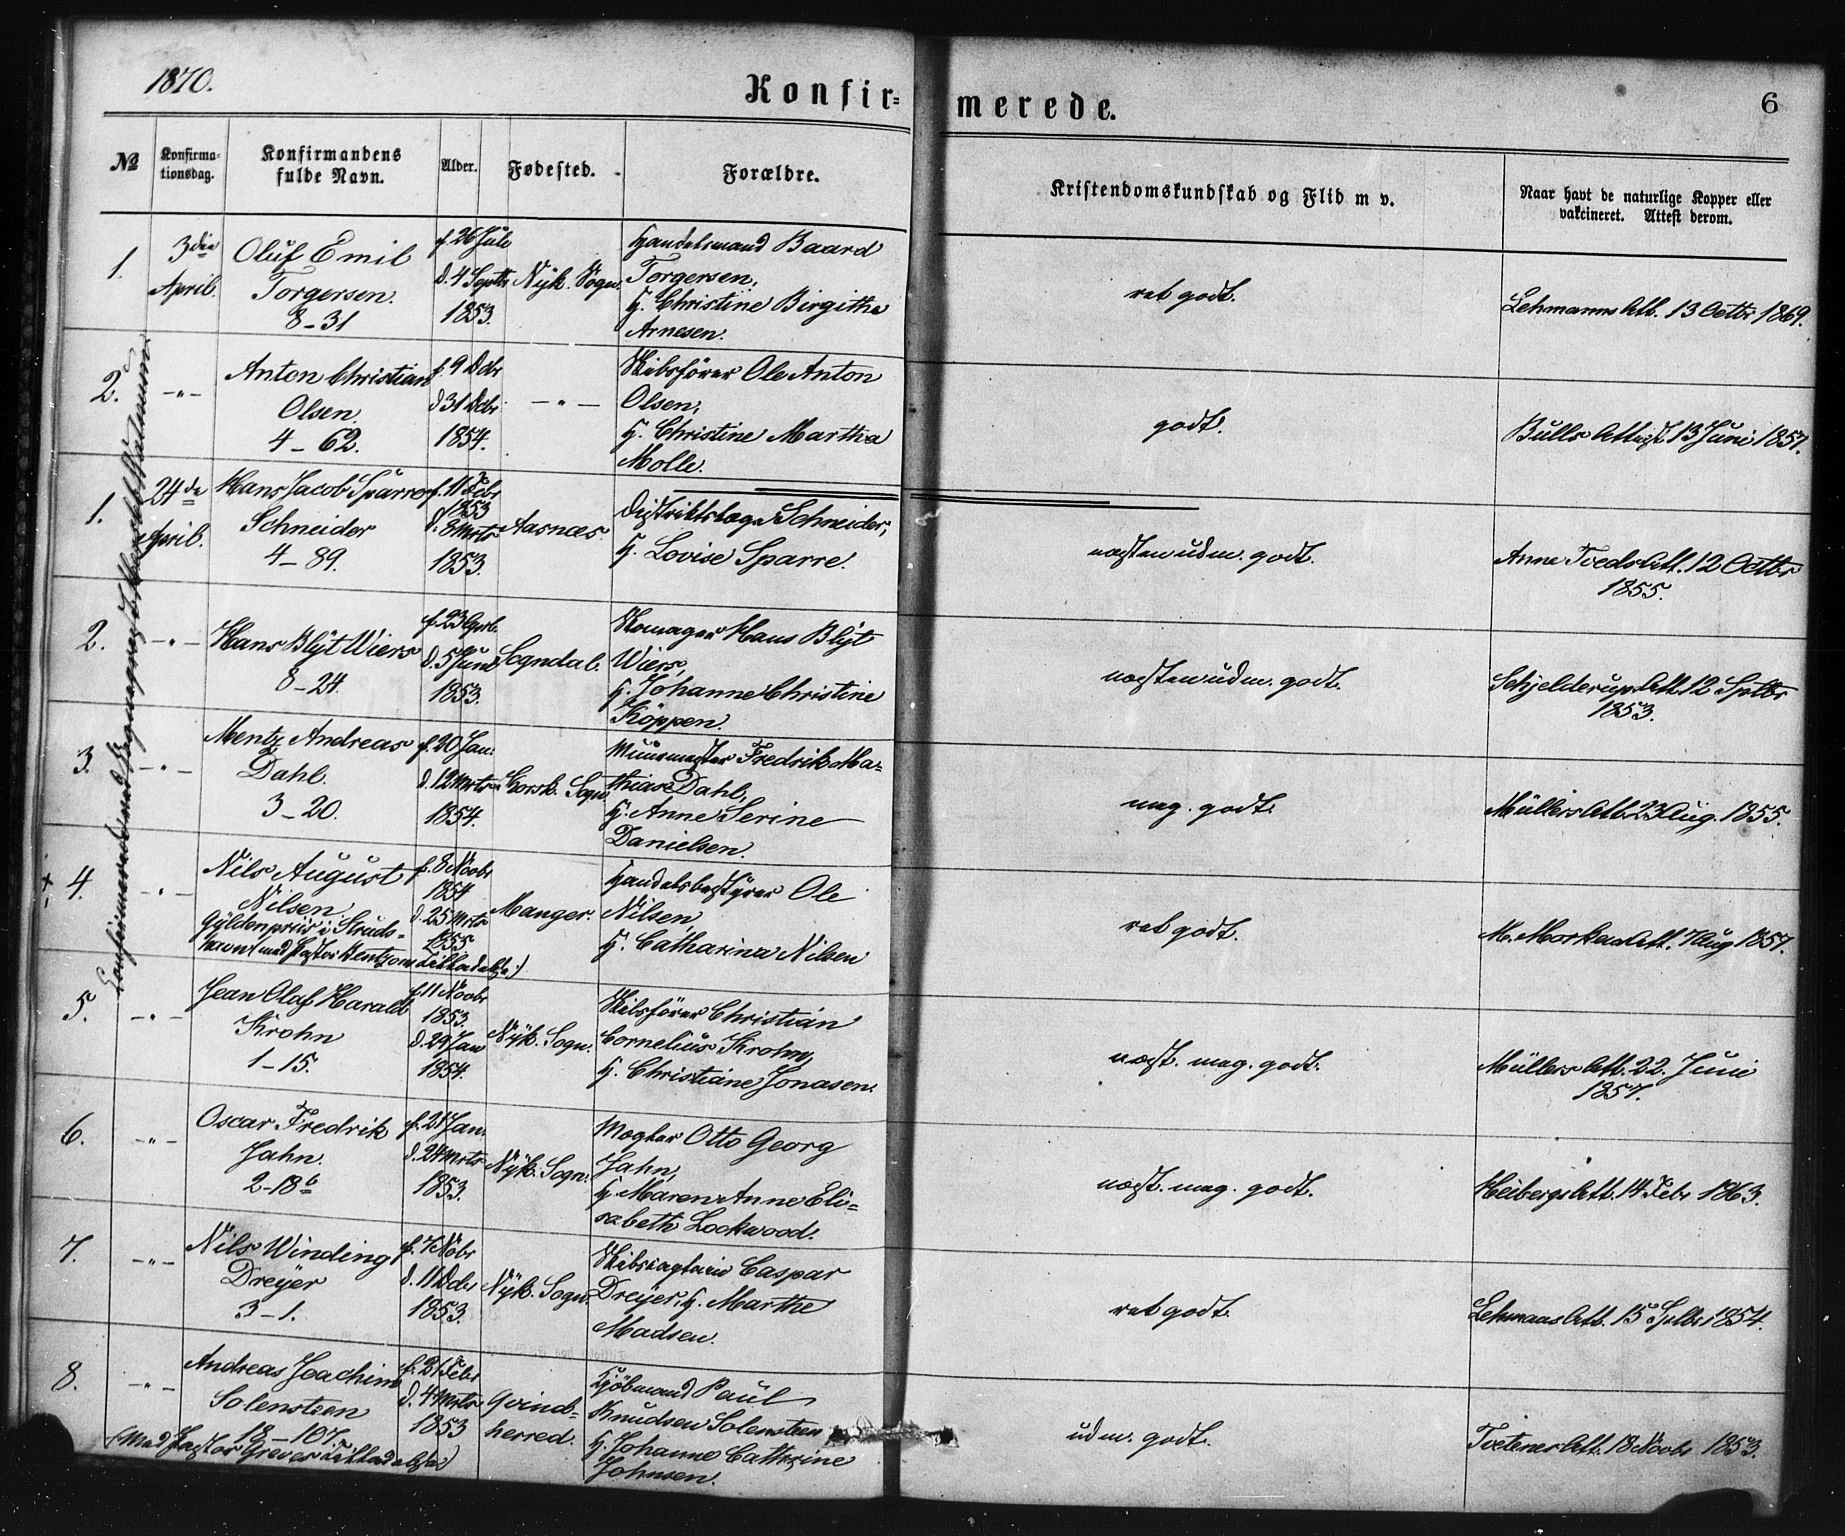 1870.
Konfir=
merede.
6
№
Konfirma-
tionsdag.
Konfirmandens
fulde Navn.
Alder.
Fødested.
Forældre.
Kristendomskundskab og Flid m v.
Naar havt de naturlige Kopper eller
vakcineret. Attest derom.
1.
3die
April.
Oluf Emil
Torgersen.
8-31
f. 26 Juli
d. 4 Septbr
1853.
Nyk. Sogn.
Handelsmand Baard
Torgersen,
H. Christine Birgitha
Arnesen.
ret godt.
Lehmanns Att. 13 Octbr 1869.
2.
-"-
Anton Christian
Olsen.
4-62.
f. 9 Dcbr
d. 31 Dcbr
1854.
-"-
Skibsfører Ole Anton
Olsen,
H. Christine Martha
Molle.
godt.
Bulls Attest 13 Juni 1857.
1.
24de
April.
Hans Jacob Sparre
Schneider
4-89.
f. 11 Febr
1853
d. 8 Mrts
1853.
Aasnæs
Distriktslæge Schneider,
H. Lovise Sparre.
næsten udm. godt.
Anne Tveds Att. 12 Octbr
1855.
2.
-"-
Hans Blyt Wiers
8-24.
f. 23 April.
d. 5 Juni
1853.
Sogndal.
Skomager Hans Blyt
Wiers,
H. Johanne Christine
Köppen.
næsten udm. godt.
Schjelderups Att. 12 Sptbr
1853.
3.
-"-
Mentz Andreas
Dahl.
3-20.
f. 20 Jan.
d. 12 Mrts
1854.
Korsk. Sogn.
Muurmester Fredrik Ma=
thias Dahl,
H. Anne Serine
Danielsen.
meg. godt.
Müllers Att. 23 Aug. 1855.
+ 4.
-"-
Nils August
Nilsen,
Gyldenpriis i Struds-
havn (med Pastor Bentzons Tilladelse.)
f. 8 Novbr
1854
d. 25 Mrts
1855
Manger.
Handelsbestyrer Ole
Nilsen,
H. Catharina Nilsen
ret godt.
M. Morkens Att. 7 Aug 1857.
5.
-"-
Jean Olaf Harald
Krohn
1-15.
f. 11 Novbr
1853
d. 29 Jan
1854.
Nyk. Sogn.
Skibsfører Christian
Cornelius Krohn,
H. Christiane Jonasen.
næst. meg. godt.
Müllers Att. 22. Juni
1857.
6.
-"-
Oscar Fredrik
Jahn.
2-18b
f. 21 Jan.
d. 24 Mrts
1853.
Nyk. Sogn.
Mægler Otto Georg
Jahn,
H. Maren Anne Eli=
sabeth Lockwood.
næst. meg. godt.
Heibergs Att. 14 Febr 1863.
7.
-"-
Nils Winding
Dreyer
3-1.
f. 7 Nobr
d. 11 Dcbr
1853.
Nyk. Sogn.
Skibscaptain Caspar
Dreyer, H. Marthe
Madsen.
ret godt.
Lehmans Att. 15 Sptbr 1854.
8.
-"-
Andreas Joachim
Solensteen
18-107.
(Med Pastor Greves Tilladelse)
f. 21 Febr
d. 4 Mrts
1853
Qvind-
herred.
Kjöbmand Paul
Knudsen Solensteen
H. Johanne Cathrine
Johnsen.
udm. godt.
Tvetenes Att. 18 Novbr 1853.